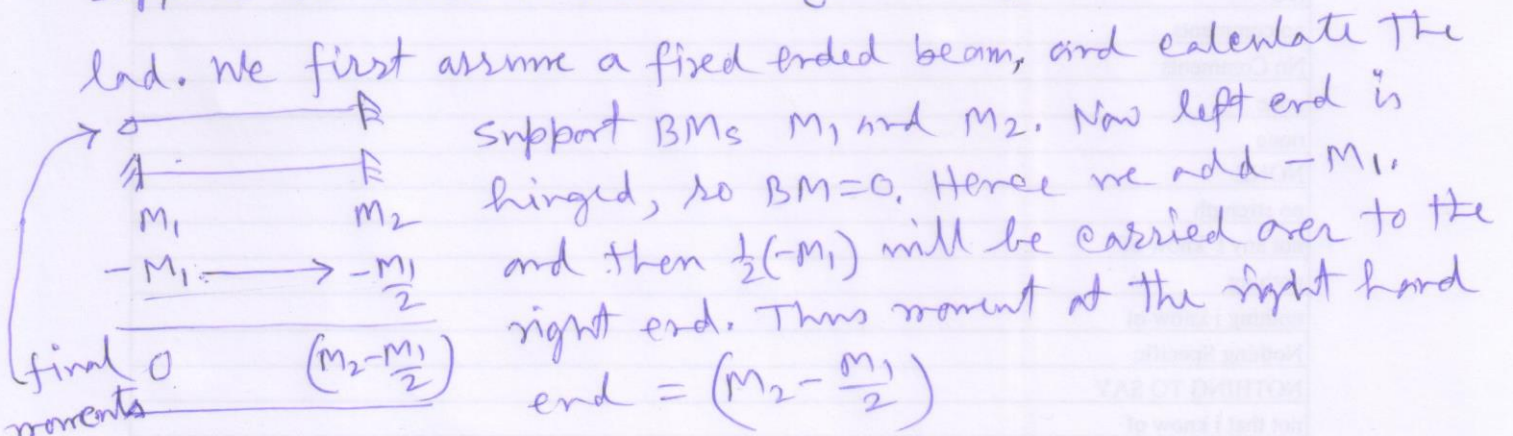 lad. We first assume a fixed ended beam, and calculate the
support BMs M1 and M2. Now left end is
hinged, so BM=0. Hence we add -M1.
and then 1/2(-M1) will be carried over to the
right end. Thus moment at the right hand
end = (M2 - M1/2)
M1 M2
-M1 → -M1/2
final 0 (M2 - M1/2)
moments